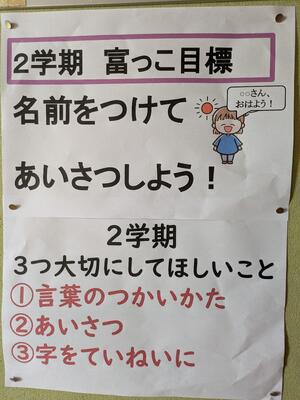 2学期 富っこ目標
名前をつけて
○○さん、
おはよう！
あいさつしよう！
2学期
3つ大切にしてほしいこと
①言葉のつかいかた
②あいさつ
③字をていねいに